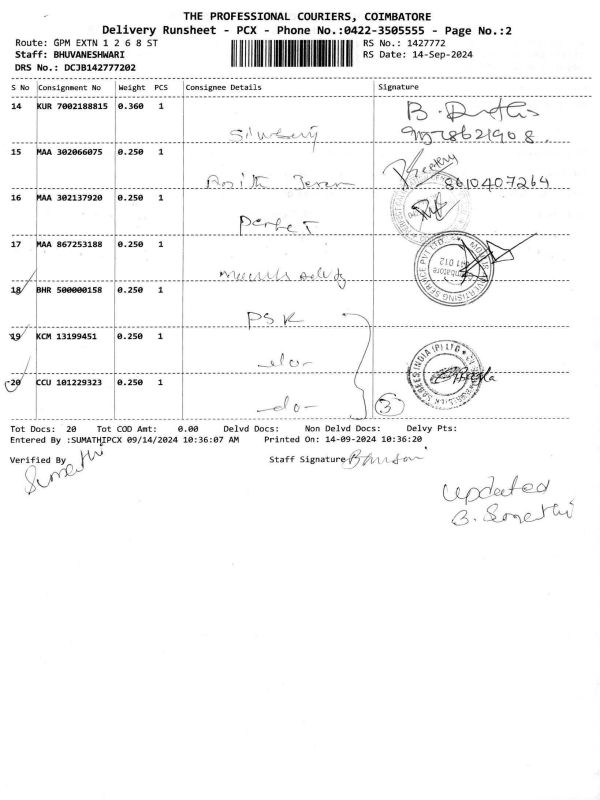 THE PROFESSIONAL COURIERS, COIMBATORE
Delivery Runsheet - PCX - Phone No.:0422-3505555 - Page No.:2
Route: GPM EXTN 1 2 6 8 ST RS No.: 1427772
Staff: BHUVANESHWARI RS Date: 14-Sep-2024
DRS No.: DCJB142777202
S No Consignment No Weight PCS Consignee Details Signature
14 KUR 7002188815 0.360 1
15 MAA 302066075 0.250 1
8610407264
16 MAA 302137920 0.250 1
17 MAA 867253188 0.250 1
18 BHR 500000158 0.250 1
PSK
19 KCM 13199451 0.250 1
-do-
20 CCU 101229323 0.250 1
-do- 3
Tot Docs: 20 Tot COD Amt: 0.00 Delvd Docs: Non Delvd Docs: Delvy Pts:
Entered By :SUMATHIPCX 09/14/2024 10:36:07 AM Printed On: 14-09-2024 10:36:20
Verified By Staff Signature
Sumathi
Updated
B. Sumathi